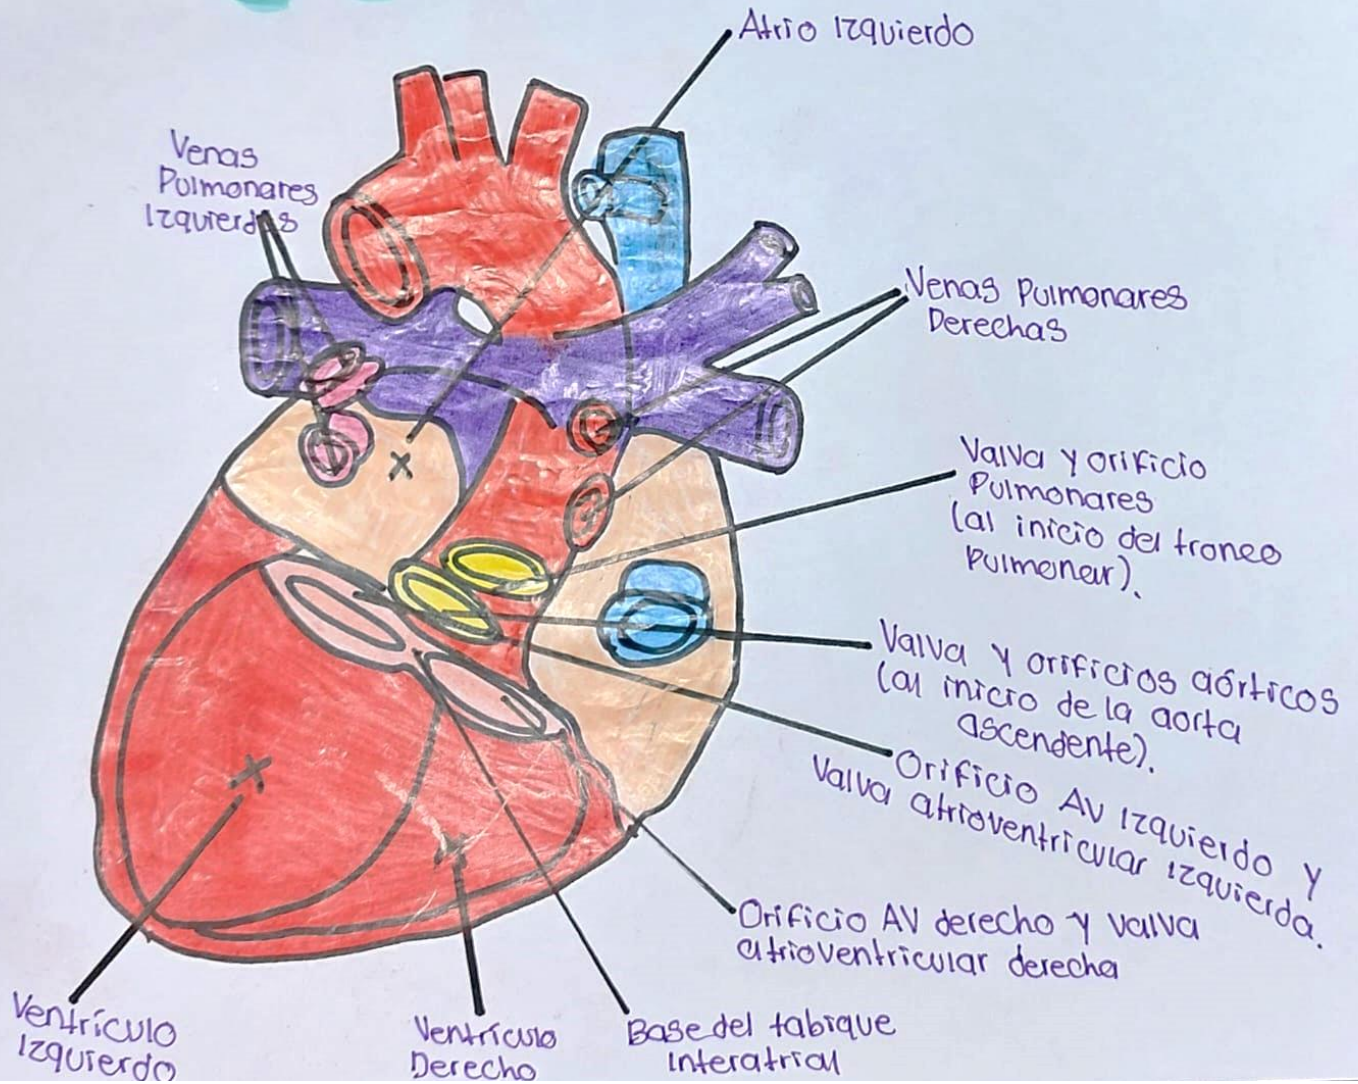 Atrio Izquierdo
Venas
Pulmonares
Izquierdas
Venas Pulmonares
Derechas
Valva y orificio
Pulmonares
(al inicio del tronco
Pulmonar).
Valva y orificios aórticos
(al inicio de la aorta
ascendente).
Orificio AV Izquierdo y
Valva atrioventricular izquierda.
Orificio AV derecho y valva
atrioventricular derecha
Base del tabique
Interatrial
Ventrículo
Derecho
Ventrículo
Izquierdo